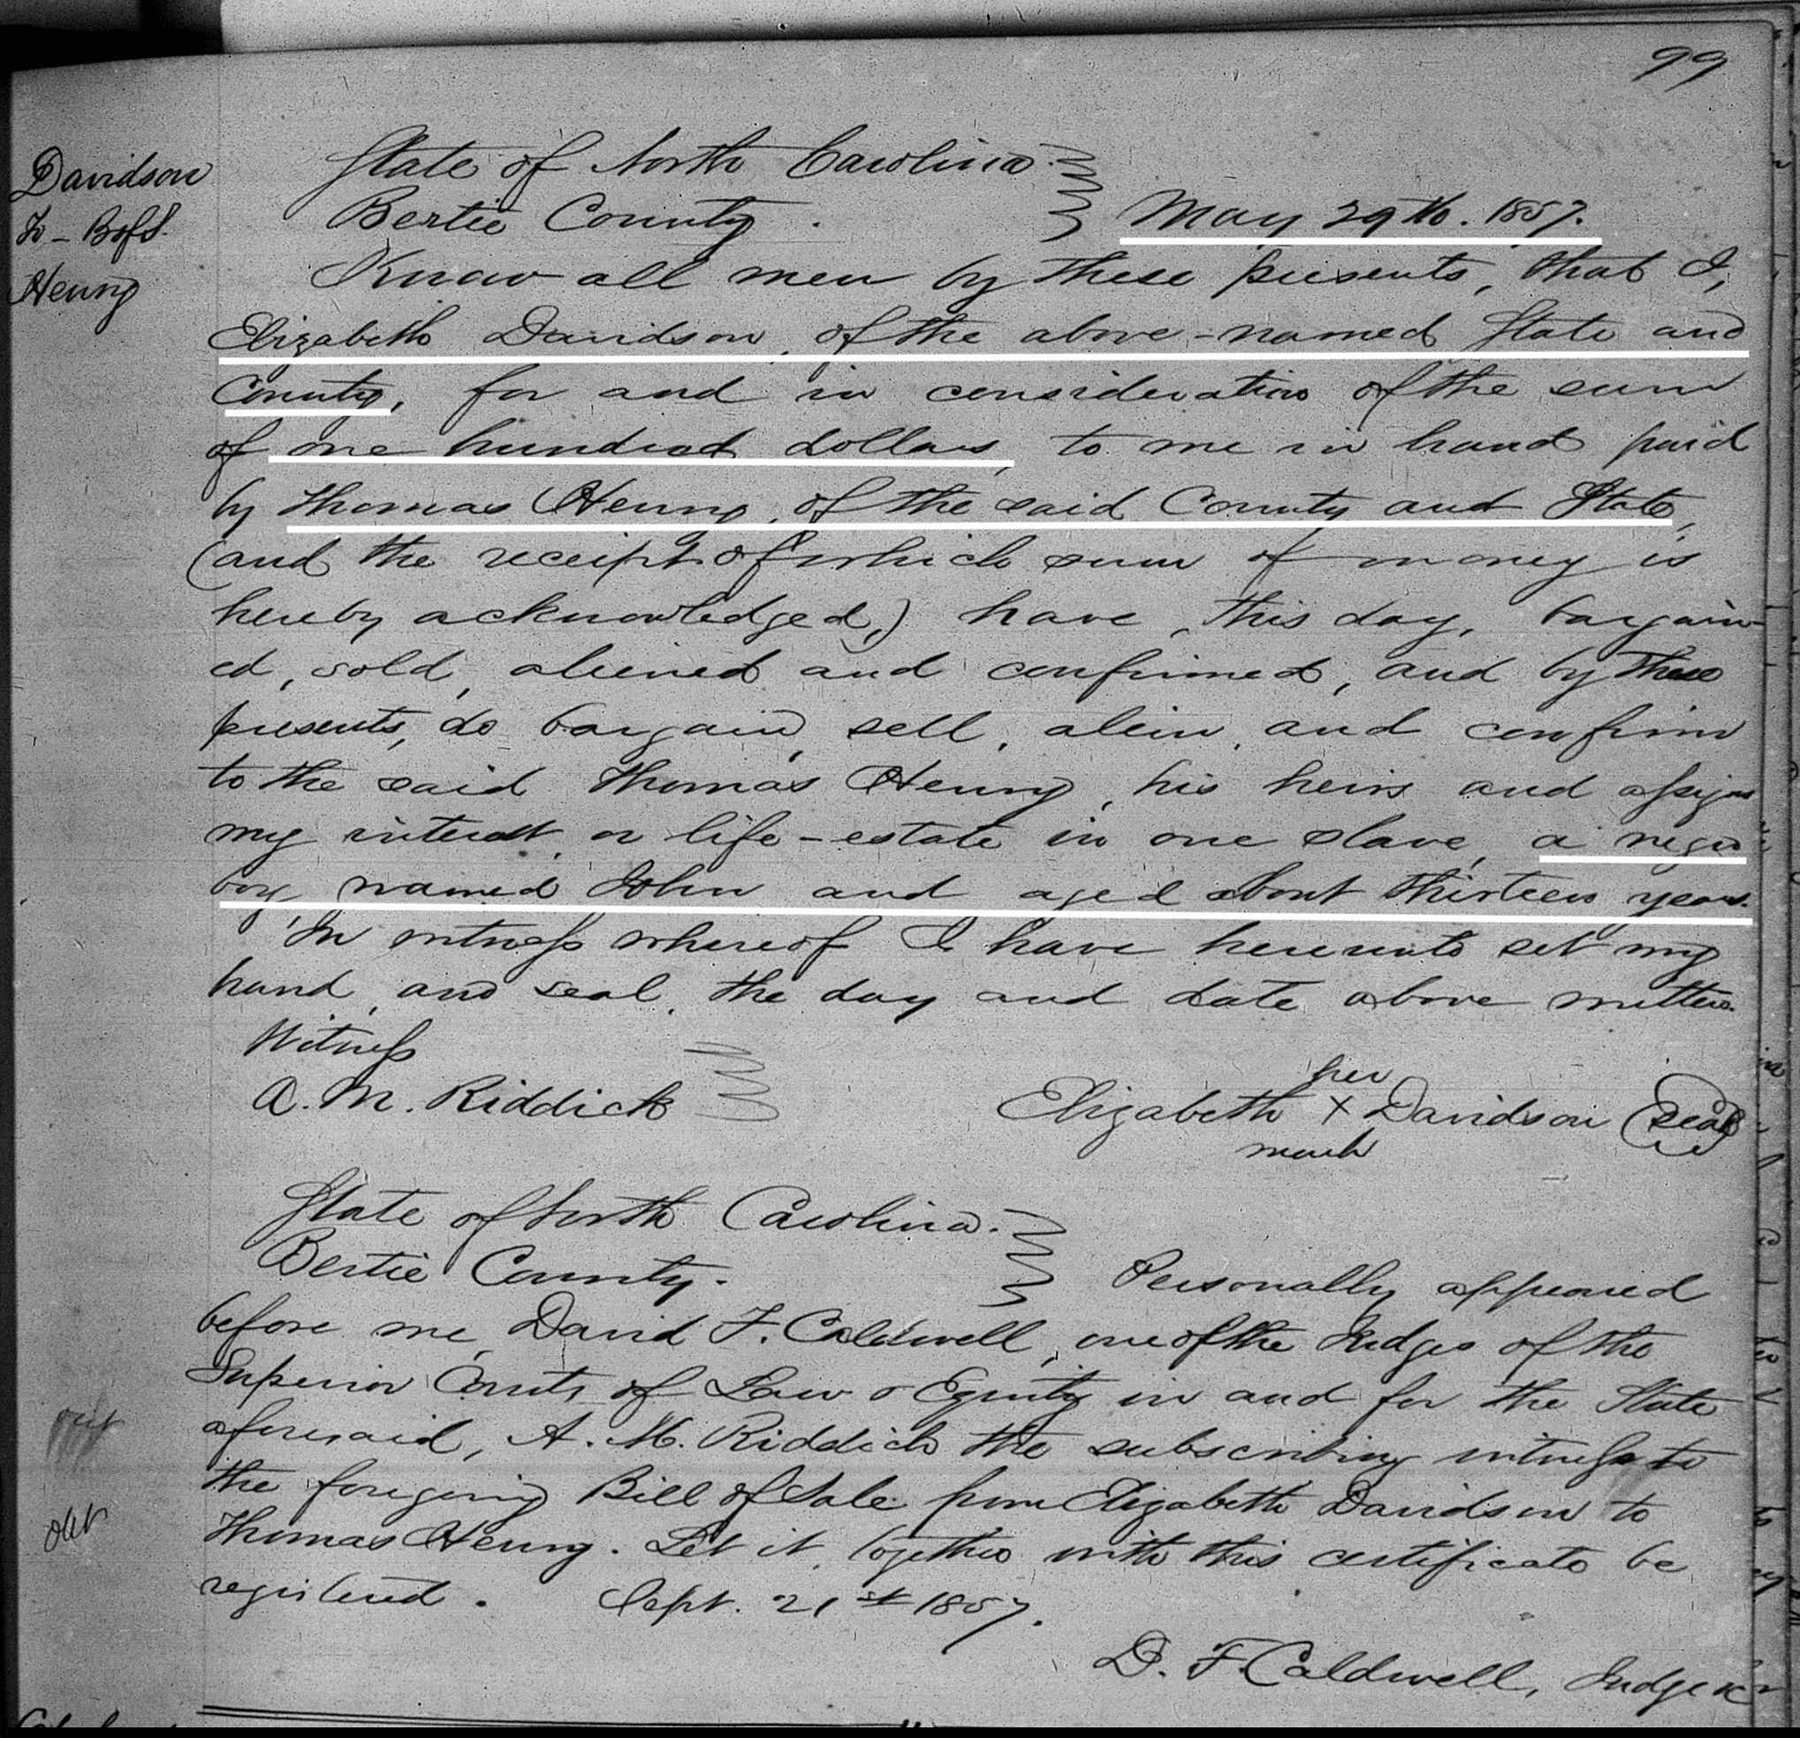 99
Davidson
To - B of S.
Henry
State of North Carolina
Bertie County. May 29th. 1857.
Know all men by these presents, that I,
Elizabeth Davidson, of the above-named State and
County, for and in consideration of the sum
of one hundred dollars, to me in hand paid
by Thomas Henry, of the said County and State,
(and the receipt of which sum of money is
hereby acknowledged,) have, this day, bargain-
ed, sold, aliened and confirmed, and by these
presents, do bargain, sell, alien, and confirm
to the said Thomas Henry, his heirs and assigns
my interest, or life-estate in one slave, a negro
boy, named John and aged about thirteen years.
In witness whereof I have hereunto set my
hand, and seal, the day and date above written.
Witness
A. M. Riddick
her
Elizabeth X Davidson (Seal)
mark
State of North Carolina.
Bertie County. Personally appeared
before me, David F. Caldwell, one of the Judges of the
Superior Courts of Law & Equity in and for the State
aforesaid, A. M. Riddick the subscribing witness to
the foregoing Bill of Sale from Elizabeth Davidson to
Thomas Henry. Let it, together with this certificate be
registered. Sept. 21st 1857.
D. F. Caldwell, Judge &c